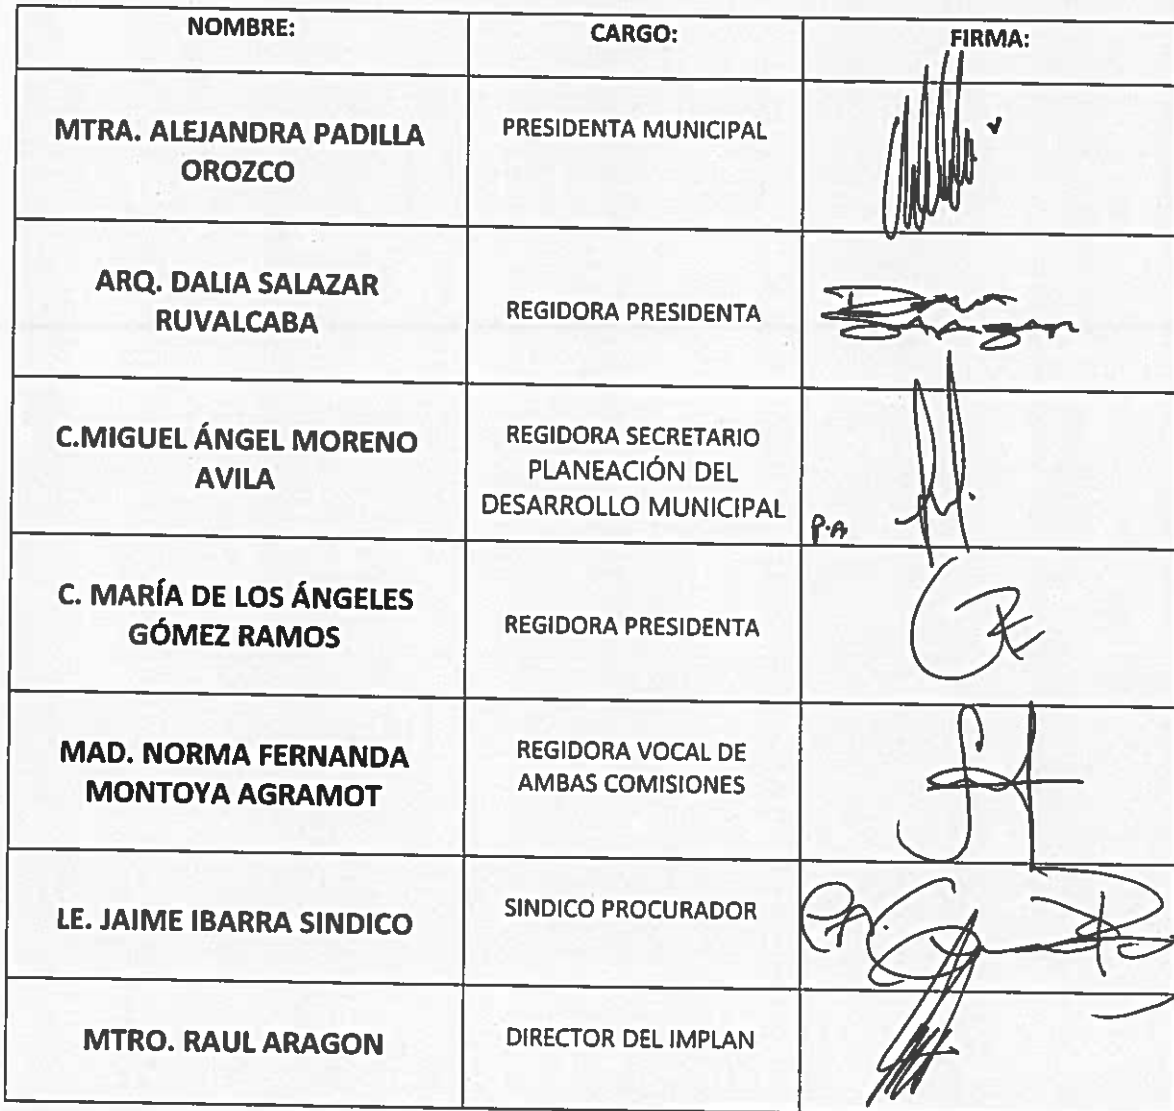 NOMBRE: CARGO: FIRMA:
MTRA. ALEJANDRA PADILLA
OROZCO
PRESIDENTA MUNICIPAL
ARQ. DALIA SALAZAR
RUVALCABA
REGIDORA PRESIDENTA
C.MIGUEL ÁNGEL MORENO
AVILA
REGIDORA SECRETARIO
PLANEACIÓN DEL
DESARROLLO MUNICIPAL
P.A.
C. MARÍA DE LOS ÁNGELES
GÓMEZ RAMOS
REGIDORA PRESIDENTA
MAD. NORMA FERNANDA
MONTOYA AGRAMOT
REGIDORA VOCAL DE
AMBAS COMISIONES
LE. JAIME IBARRA SINDICO
SINDICO PROCURADOR
P.A.
MTRO. RAUL ARAGON
DIRECTOR DEL IMPLAN